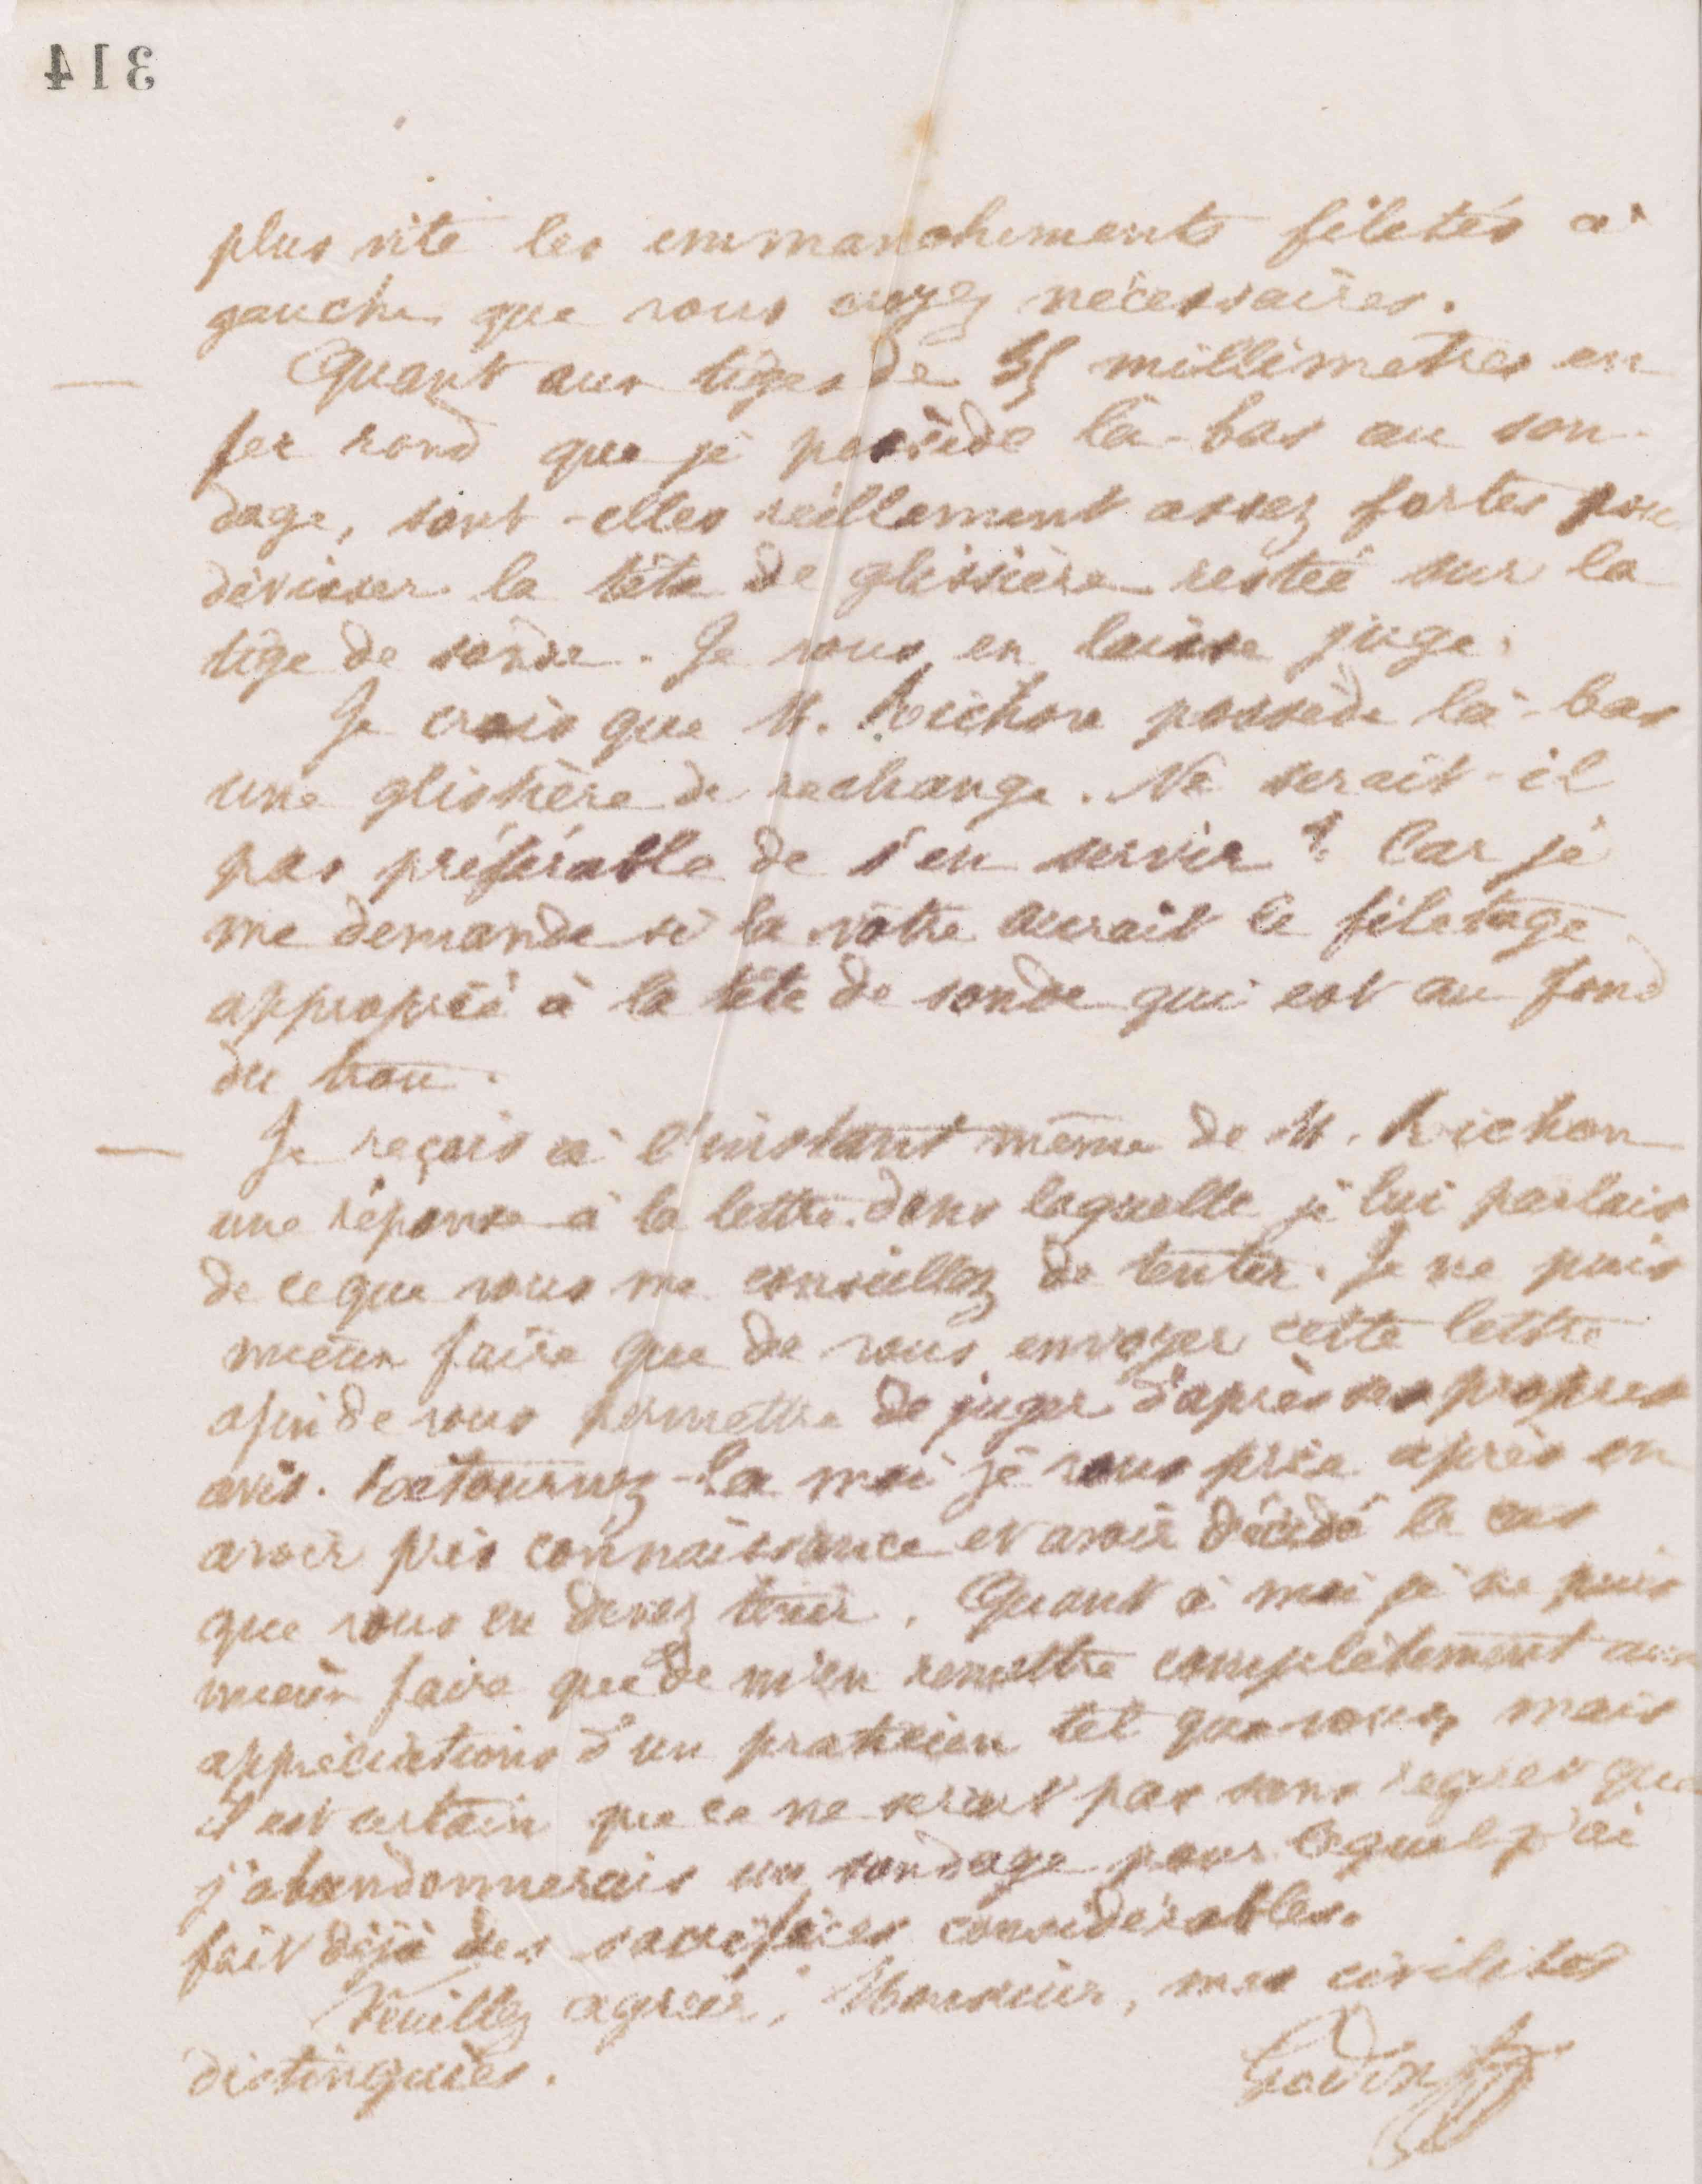 314
plus vite les emmanchements filetés à
gauche que vous croyez nécessaires.
Quant aux tiges de 35 millimètres en
fer rond que je possède là-bas au son-
dage, sont-elles réellement assez fortes pour
dévisser la tête de glissière restée sur la
tige de sonde. Je vous en laisse juge.
Je crois que M. Richon possède là-bas
une glissière de rechange. Ne serait-il
pas préférable de s'en servir ? Car je
me demande si la vôtre aurait le filetage
approprié à la tête de sonde qui est au fond
du trou.
Je reçois à l'instant même de M. Richon
une réponse à la lettre dans laquelle je lui parlais
de ce que vous me conseillez de tenter. Je ne puis
mieux faire que de vous envoyer cette lettre
afin de vous permettre de juger d'après ses propres
avis. Retournez-la moi je vous prie après en
avoir pris connaissance et avoir décidé le cas
que vous en devez tenir. Quant à moi je ne puis
mieux faire que de m'en remettre complètement aux
appréciations d'un praticien tel que vous, mais
il est certain que ce ne serait pas sans regret que
j'abandonnerais un sondage pour lequel j'ai
fait déjà des sacrifices considérables.
Veuillez agréer, Monsieur, mes civilités
distinguées.
Godin